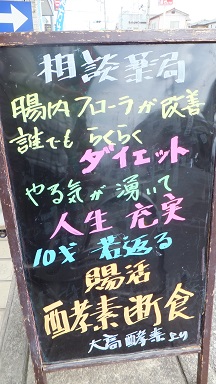 相談薬局
腸内フローラが改善
誰でもらくらく
ダイエット
やる気が湧いて
人生 充実
10才 若返る
腸活
酵素断食
大高酵素より